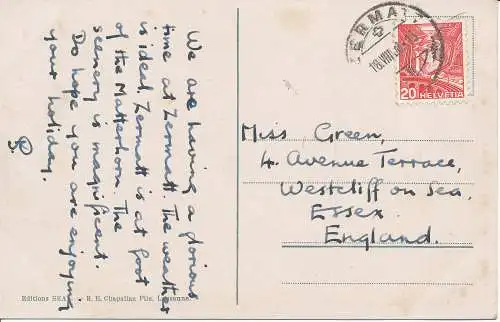 We are having a glorious
time at Zermatt. The weather
is ideal. Zermatt is at foot
of the Matterhorn. The
scenery is magnificent.
Do hope you are enjoying
your holiday.
ZERMATT
18.VIII
20
HELVETIA
Miss Green,
4. Avenue Terrace,
Westcliff on Sea.
Essex
England.
Editions R. E. Chapallaz Fils, Lausanne.